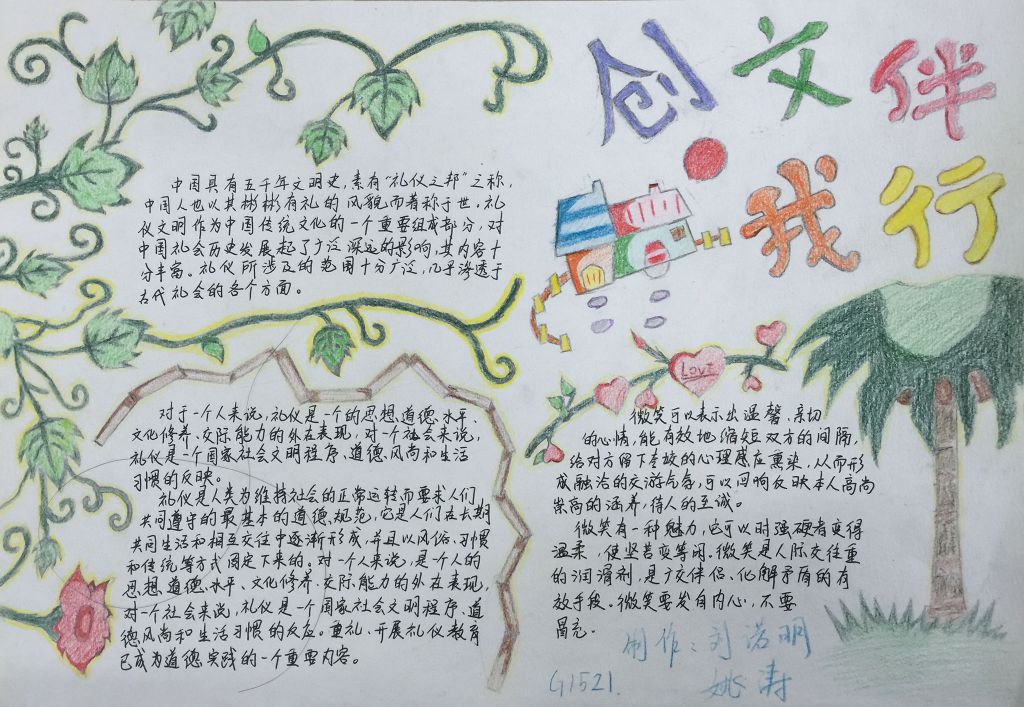 创文伴
我行
中国具有五千年文明史，素有“礼仪之邦”之称，
中国人也以其彬彬有礼的风貌而著称于世。礼
仪文明作为中国传统文化的一个重要组成部分，对
中国礼会历史发展起了广泛深远的影响，其内容十
分丰富。礼仪所涉及的范围十分广泛，几乎渗透于
古代礼会的各个方面。
对于一个人来说，礼仪是一个的思想、道德、水平、
文化修养、交际能力的外在表现，对一个社会来说，
礼仪是一个国家社会文明程序、道德、风尚和生活
习惯的反映。
礼仪是人类为维持社会的正常运转而要求人们
共同遵守的最基本的道德、规范，它是人们在长期
共同生活和相互交往中逐渐形成，并且以风俗、习惯
和传统等方式固定下来的。对一个人来说，是个人的
思想、道德、水平、文化修养、交际、能力的外在表现，
对一个社会来说，礼仪是一个国家社会文明程序、道
德风尚和生活习惯的反应。重礼、开展礼仪教育
已成为道德实践的一个重要内容。
Love
微笑可以表示出温馨、亲切
的心情，能有效地缩短双方的间隔，
给对方留下的心理感应熏染，从而形
成融洽的交游气氛，可以回响反映本人高尚
崇高的涵养，待人的至诚。
微笑有一种魅力，它可以时强硬者变得
温柔，使坚苦变等闲。微笑是人际交往重
的润滑剂，是广交伴侣、化解矛盾的有
效手段。微笑要发自内心，不要
冒充。
制作：刘诺明
姚涛
G1521.